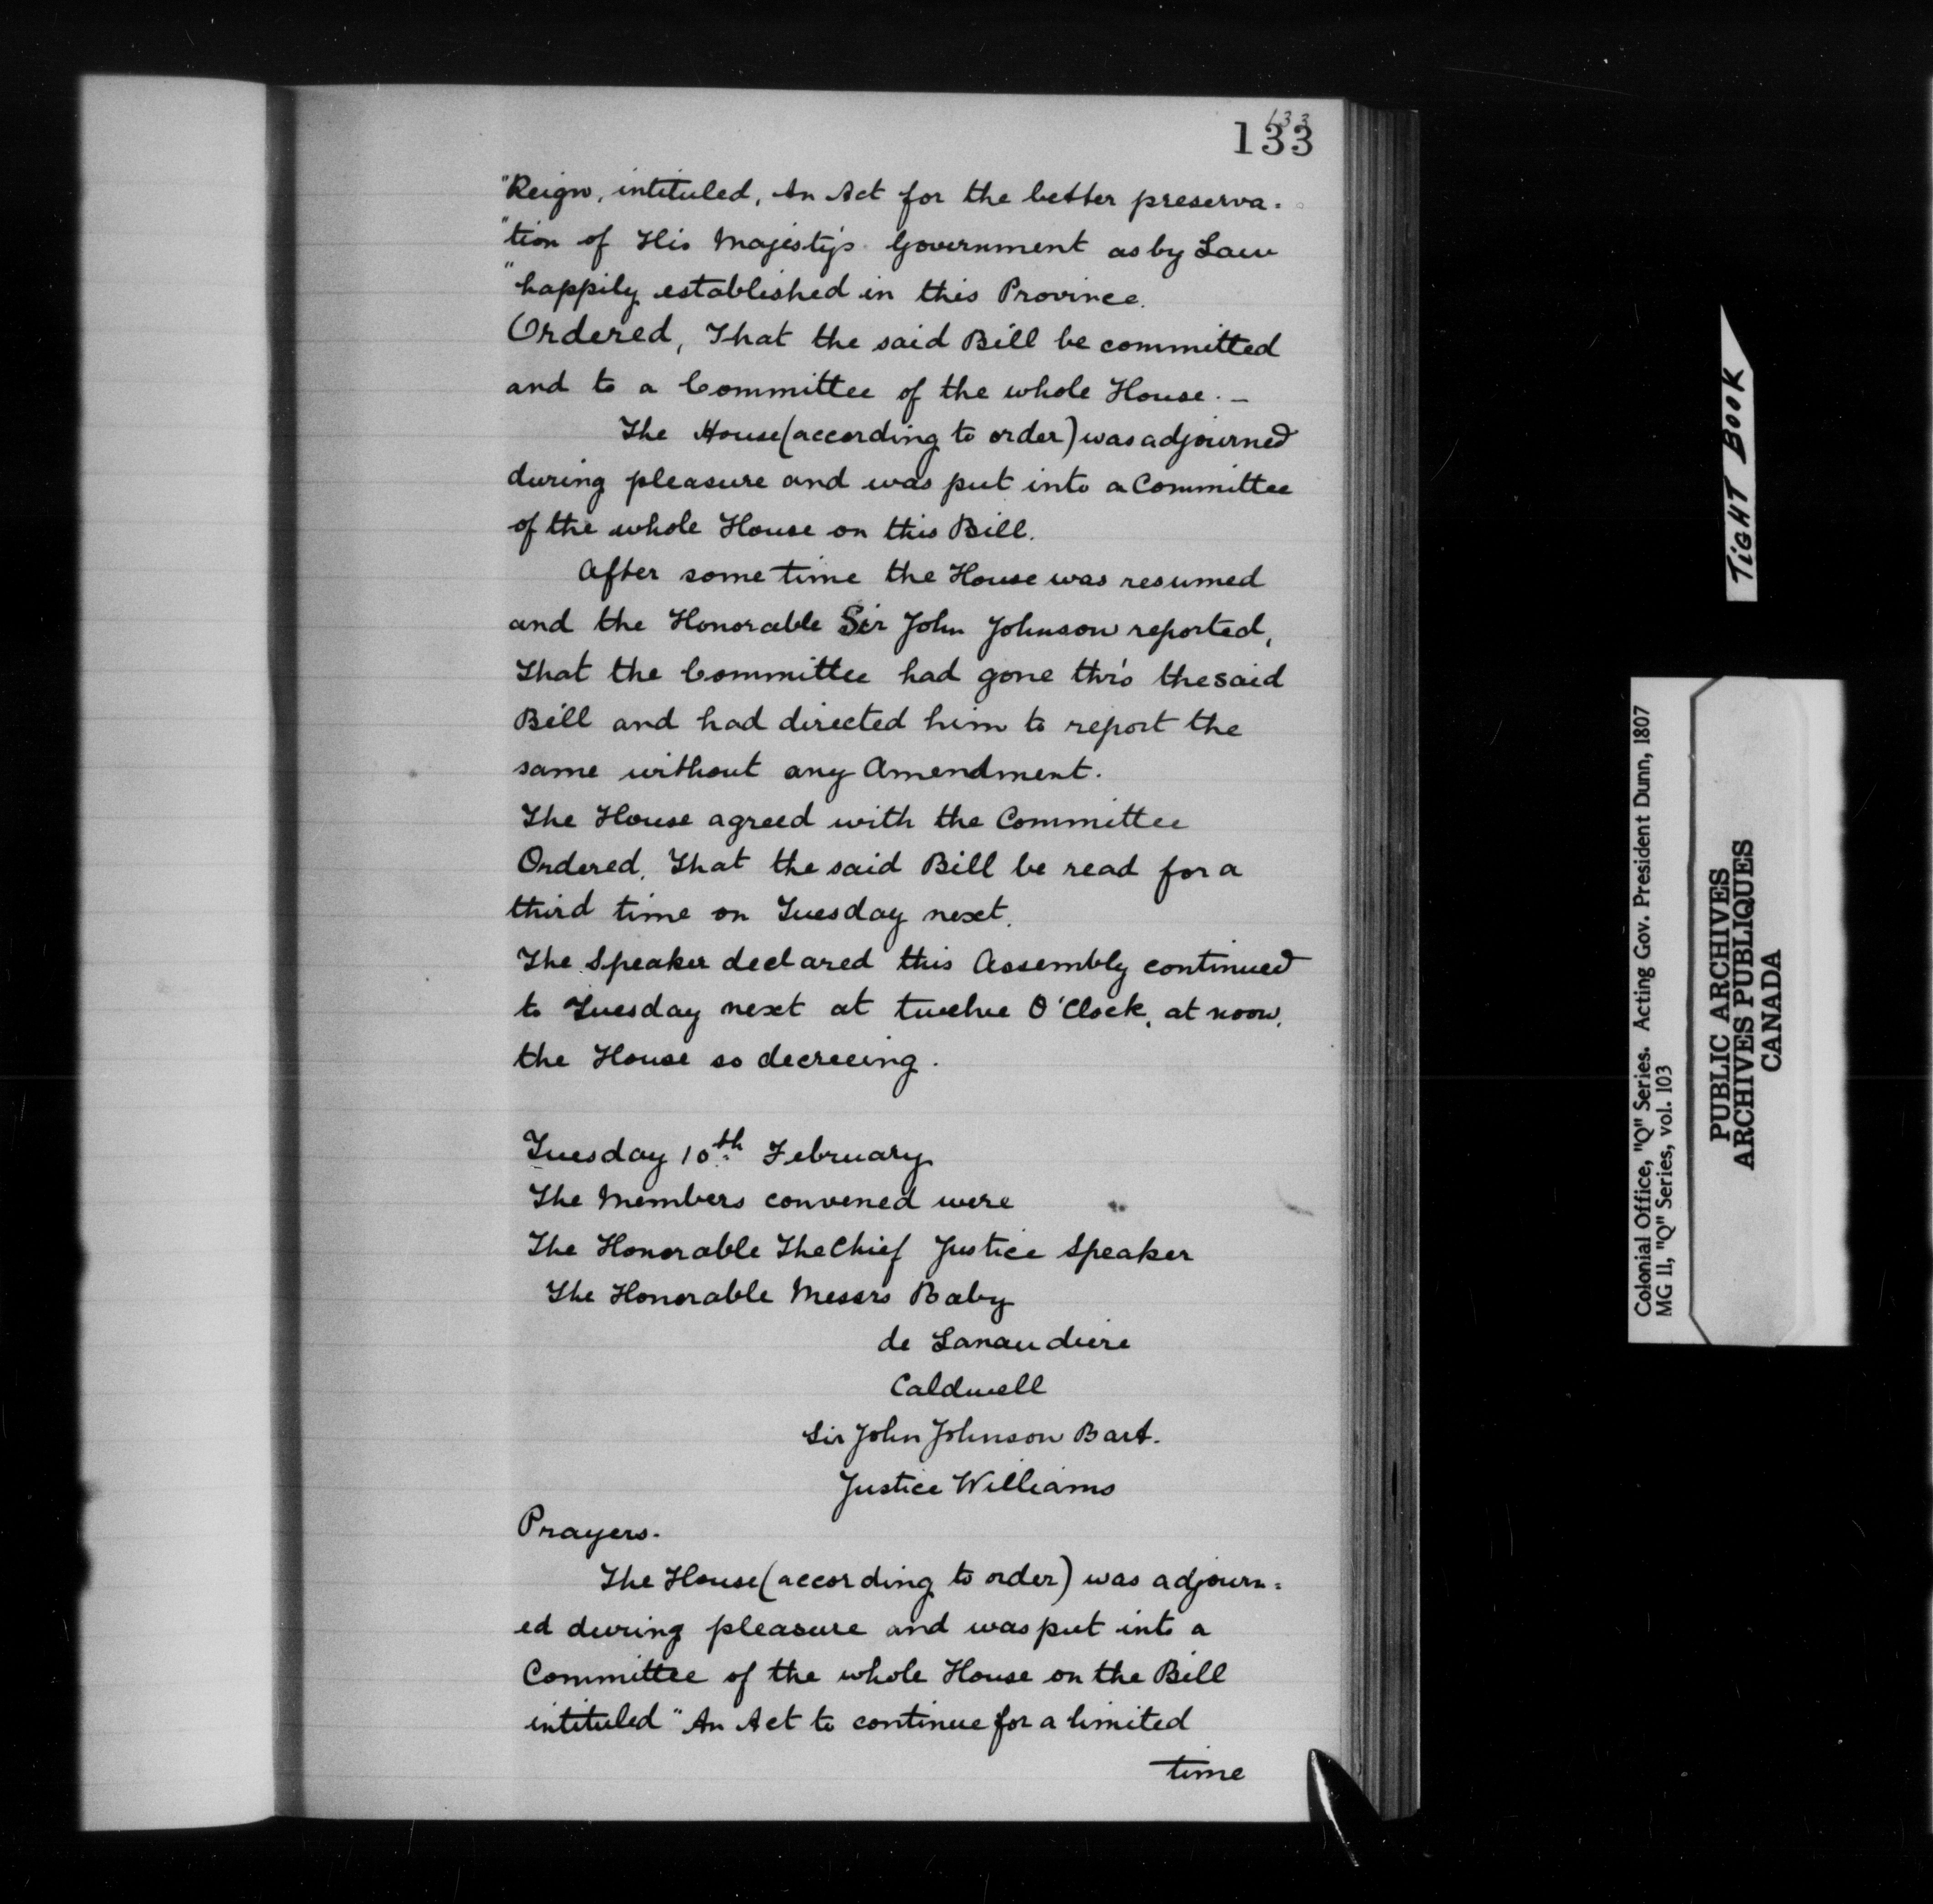 133
133
"Reign, intituled, An Act for the better preserva-
"tion of His Majesty's Government as by Law
"happily established in this Province.
Ordered, That the said Bill be committed
and to a Committee of the whole House. -
The House (according to order) was adjourned
during pleasure and was put into a Committee
of the whole House on this Bill.
After some time the House was resumed
and the Honorable Sir John Johnson reported,
That the Committee had gone thro' the said
Bill and had directed him to report the
same without any Amendment.
The House agreed with the Committee
Ordered, That the said Bill be read for a
third time on Tuesday next.
The Speaker declared this Assembly continued
to Tuesday next at twelve O'Clock, at noon,
the House so decreeing.
Tuesday 10th February
The Members convened were
The Honorable The Chief Justice Speaker
The Honorable Messrs Baby
de Lanaudiere
Caldwell
Sir John Johnson Bart.
Justice Williams
Prayers.
The House (according to order) was adjourn=
ed during pleasure and was put into a
Committee of the whole House on the Bill
intituled "An Act to continue for a limited
time
TIGHT BOOK
Colonial Office, "Q" Series. Acting Gov. President Dunn, 1807
MG 11, "Q" Series, vol. 103
PUBLIC ARCHIVES
ARCHIVES PUBLIQUES
CANADA